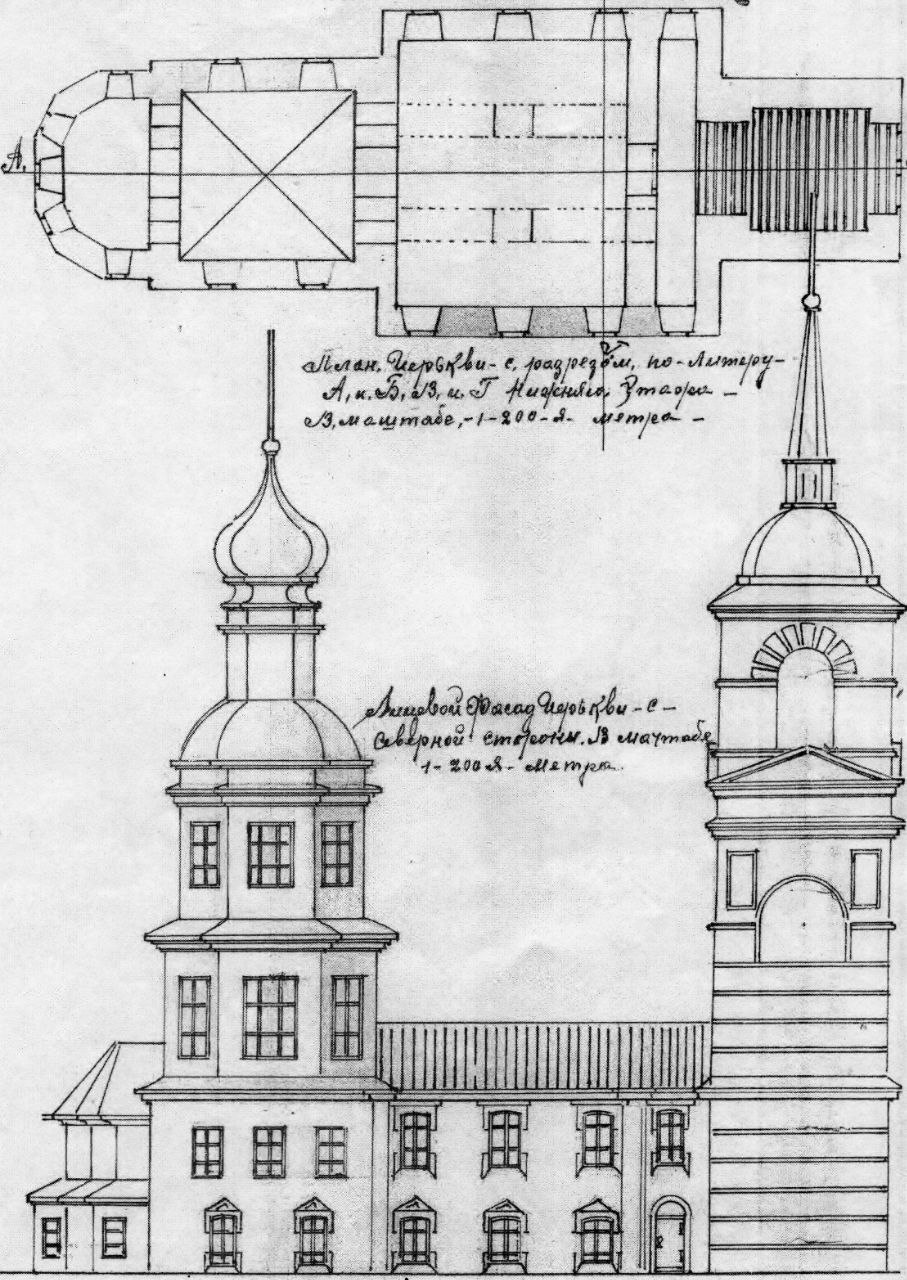 А.
План. Церькви - с, разрезом, по - Литеру -
А, к. Б, В, и. Г Нижняго Этажа -
В, маштабе, - 1 - 200 - я. метра -
Лицевой Фасад Церькви - с -
Северной стороны. В маштабе
1 - 200 я - метра.